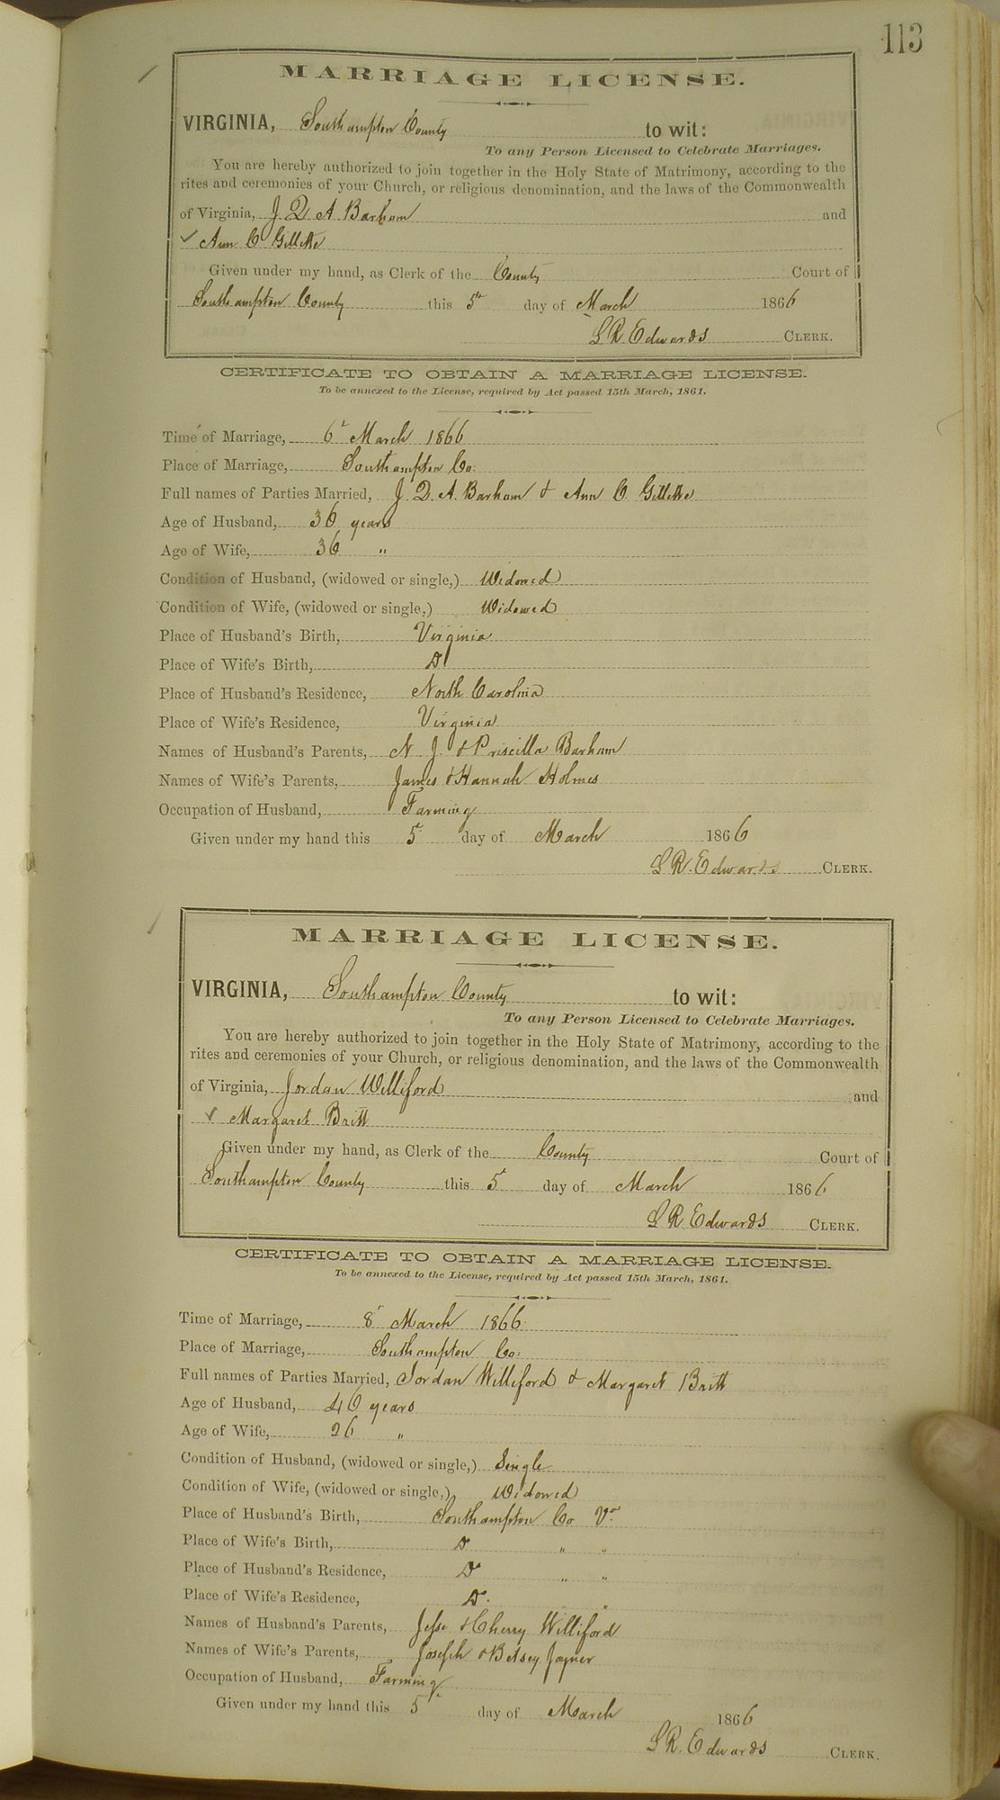 113
MARRIAGE LICENSE.
VIRGINIA, Southampton County to wit:
To any Person Licensed to Celebrate Marriages.
You are hereby authorized to join together in the Holy State of Matrimony, according to the
rites and ceremonies of your Church, or religious denomination, and the laws of the Commonwealth
of Virginia, J. D. A. Barham and
Ann C Gillette
Given under my hand, as Clerk of the County Court of
Southampton County this 5th day of March 1866
L R Edwards CLERK.
CERTIFICATE TO OBTAIN A MARRIAGE LICENSE.
To be annexed to the License, required by Act passed 15th March, 1861.
Time of Marriage, 6" March 1866
Place of Marriage, Southampton Co:
Full names of Parties Married, J. D. A. Barham & Ann C Gillette
Age of Husband, 36 years
Age of Wife, 36 "
Condition of Husband, (widowed or single,) Widowed
Condition of Wife, (widowed or single,) Widowed
Place of Husband's Birth, Virginia
Place of Wife's Birth, Do
Place of Husband's Residence, North Carolina
Place of Wife's Residence, Virginia
Names of Husband's Parents, N. J. & Priscilla Barham
Names of Wife's Parents, James & Hannah Holmes
Occupation of Husband, Farming
Given under my hand this 5" day of March 1866
L R. Edwards CLERK.
MARRIAGE LICENSE.
VIRGINIA, Southampton County to wit:
To any Person Licensed to Celebrate Marriages.
You are hereby authorized to join together in the Holy State of Matrimony, according to the
rites and ceremonies of your Church, or religious denomination, and the laws of the Commonwealth
of Virginia, Jordan Williford and
Margaret Britt
Given under my hand, as Clerk of the County Court of
Southampton County this 5" day of March 1866
L R Edwards CLERK.
CERTIFICATE TO OBTAIN A MARRIAGE LICENSE.
To be annexed to the License, required by Act passed 15th March, 1861.
Time of Marriage, 8" March 1866
Place of Marriage, Southampton Co:
Full names of Parties Married, Jordan Williford & Margaret Britt
Age of Husband, 46 years
Age of Wife, 26 "
Condition of Husband, (widowed or single,) Single
Condition of Wife, (widowed or single,) Widowed
Place of Husband's Birth, Southampton Co Va
Place of Wife's Birth, Do " "
Place of Husband's Residence, Do " "
Place of Wife's Residence, Do. "
Names of Husband's Parents, Jesse & Cherry Williford
Names of Wife's Parents, Joseph & Betsey Joyner
Occupation of Husband, Farming
Given under my hand this 5" day of March 1866
L R. Edwards CLERK.